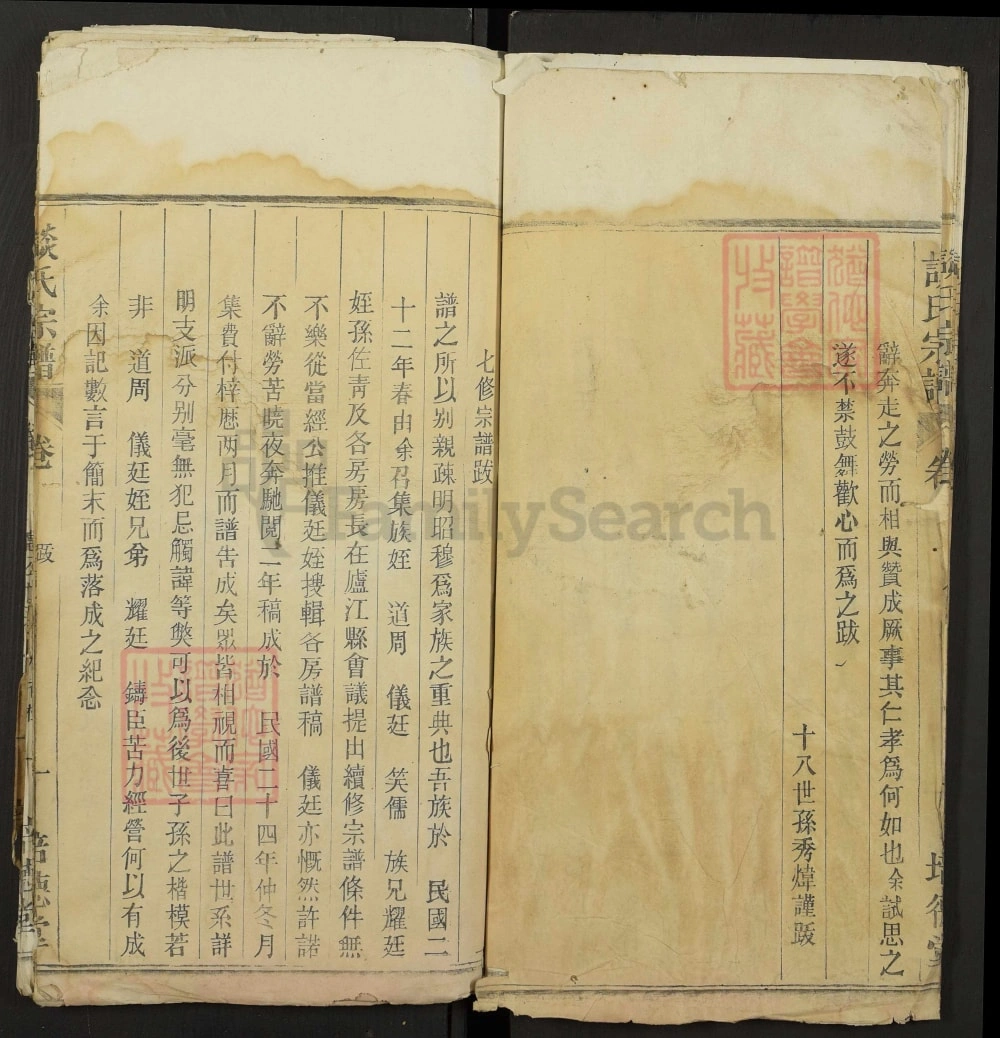 辭奔走之勞而相與贊成厥事其仁孝爲何如也余試思之
遂不禁鼓舞歡心而爲之跋
十八世孫秀煒謹跋
七修宗譜跋
譜之所以别親疎明昭穆爲家族之重典也吾族於 民國二
十二年春由余召集族姪 道周 儀廷 笑儒 族兄耀廷
姪孫佐青及各房房長在廬江縣會議提出續修宗譜條件無
不樂從當經公推儀廷姪搜輯各房譜稿 儀廷亦慨然許諾
不辭勞苦曉夜奔馳閱二年稿成於 民國二十四年仲冬月
集費付梓歷两月而譜告成矣眾皆相視而喜曰此譜世系詳
明支派分别毫無犯忌觸諱等獘可以爲後世子孫之楷模若
非 道周 儀廷姪兄弟 耀廷 鑄臣苦力經營何以有成
余因記數言于簡末而爲落成之紀念
談氏宗譜 卷一 跋 一
FamilySearch